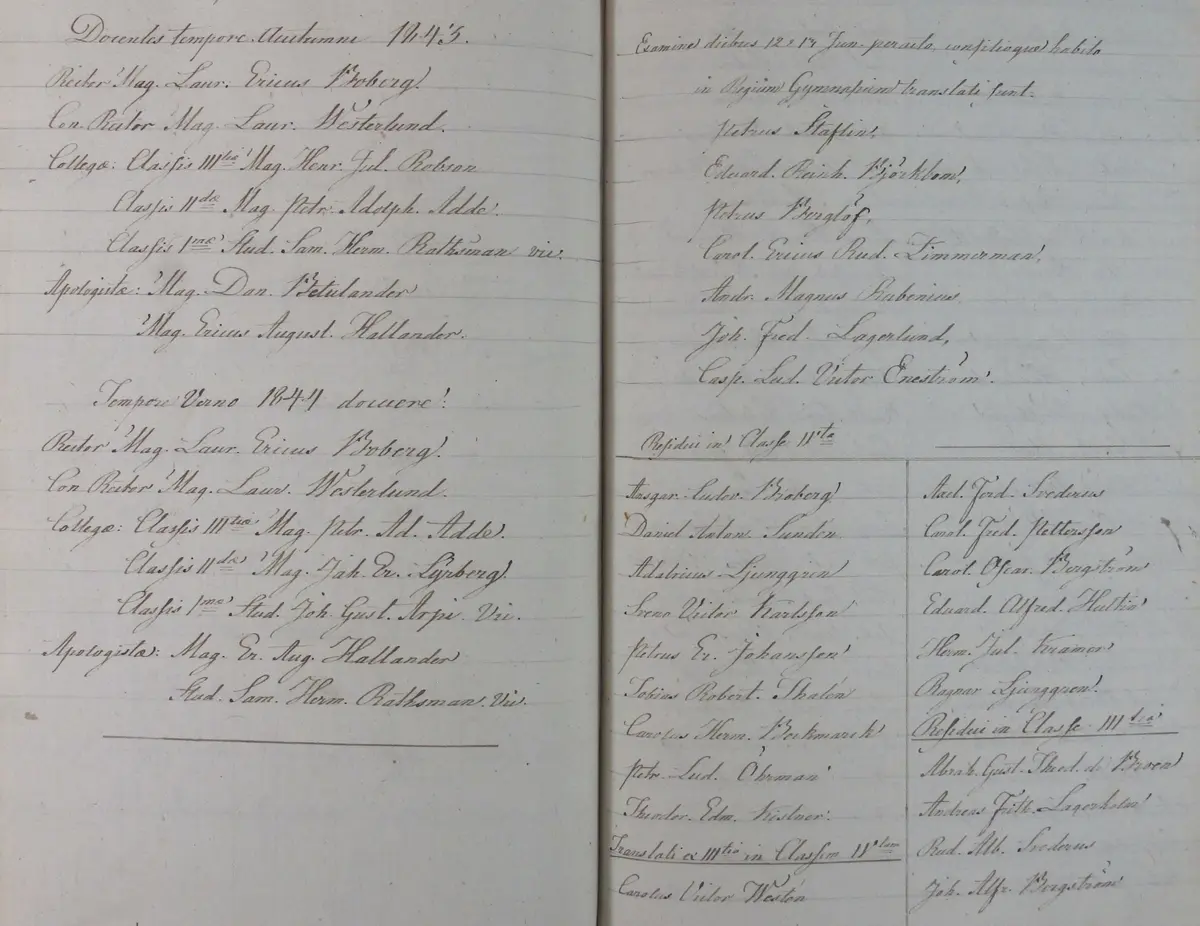 Docentes tempore Autumni 1843.
Rector Mag. Laur. Ericus Boberg.
Con Rector Mag. Laur. Westerlund.
Collegæ: Classis IIItiæ Mag. Henr. Jul. Robson
Classis IIdæ Mag. Petr. Adolph. Adde.
Classis Imæ Stud. Sam. Herm. Rathsman vic.
Apologistæ: Mag. Dan. Betulander
Mag. Ericus August. Hallander.
Tempore Verno 1844 docuere:
Rector Mag. Laur. Ericus Boberg.
Con Rector Mag. Laur. Westerlund.
Collegæ: Classis IIItiæ Mag. Petr. Ad. Adde.
Classis IIdæ Mag. Joh. Er. Syrberg.
Classis Imæ Stud. Joh. Gust. Arpi Vic.
Apologistæ: Mag. Er. Aug. Hallander
Stud. Sam. Herm. Rathsman. Vic.
Examine diebus 12 & 13 Jun. peracto, consilioque habito
in Regium Gymnasium translati sunt.
Petrus Staflin,
Eduard. Reinh. Björkbom,
Petrus Berglöf,
Carol. Ericus Rud. Zimmerman,
Andr. Magnus Rubenius,
Joh. Fred. Lagerlund,
Casp. Lud. Victor Eneström.
Residui in Classe IIta
Ansgar. Ludov. Broberg
Daniel Anton. Sundén
Adalricus Ljunggren
Sveno Victor Karlsson
Petrus Er. Johansson
Tobias Robert. Thalén
Carolus Herm. Beckmarck
Petr. Lud. Öhrman
Theodor. Edm. Kistner.
Translati e IIItia in Classem IItam
Carolus Victor Westón
Axel. Ferd. Svederus
Carol. Fred. Pettersson
Carol. Oscar. Bergström
Eduard. Alfred. Hultin
Herm. Jul. Kramer
Ragnar Ljunggren.
Residui in Classe IIItia
Abrah. Gust. Theod. de Broen
Andreas Frith. Lagerholm
Rud. Alb. Svederus
Joh. Alfr. Bergström